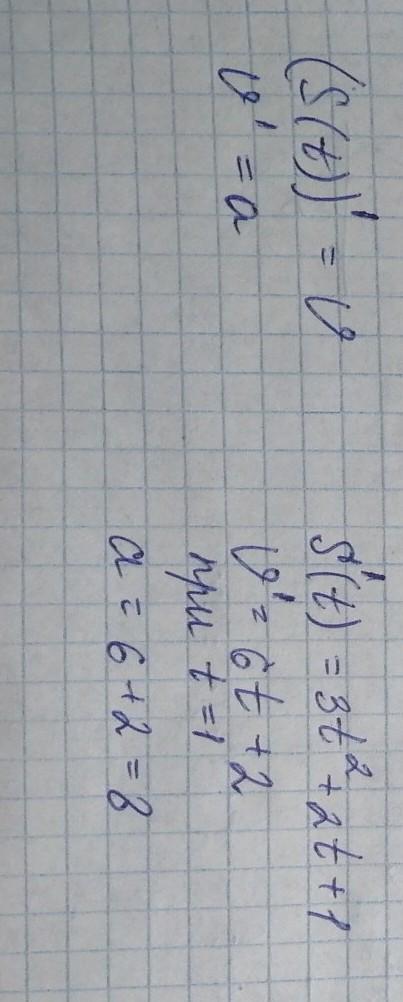 (S(t))' = v
v' = a
S'(t) = 3t² + 2t + 1
v' = 6t + 2
при t = 1
a = 6 + 2 = 8